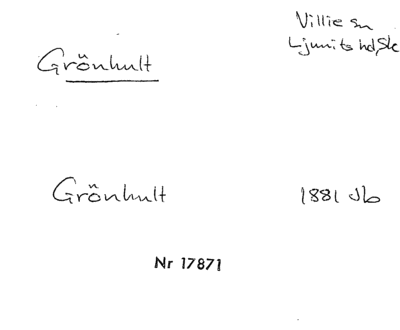 Villie sn
Ljunits hd, Sk
Grönhult
Grönhult 1881 Jb
Nr 17871